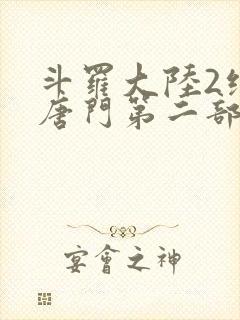 斗羅大陸2
唐門第二部
宴會之神